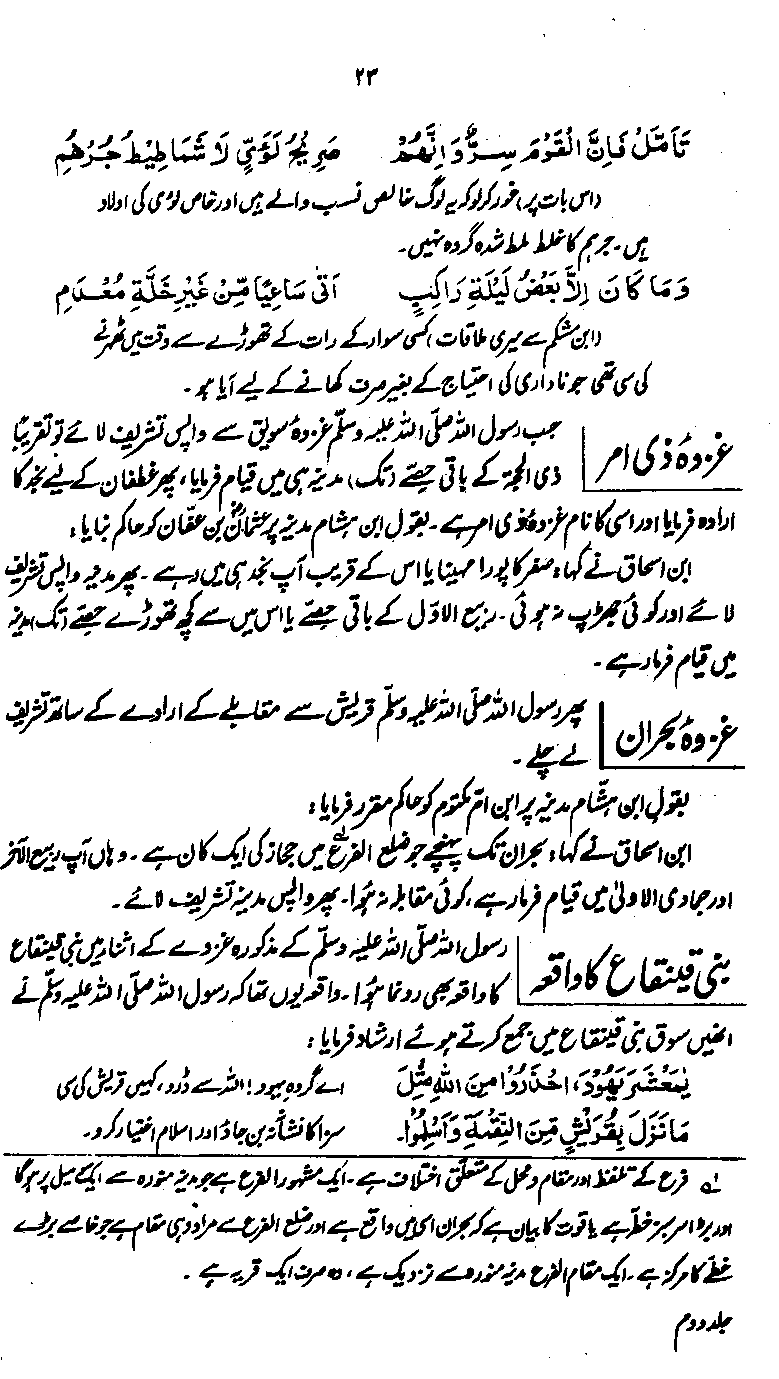 ۲۳
تَأَمَّلْ فَإِنَّ الْقَوْمَ سِرٌّ وَإِنَّهُمْ صَرِيْحُ لُؤَيٍّ لَا شَمَاطِيْطُ جُرْهُمِ
(اس بات پر) غور کرلو کہ یہ لوگ خالص نسب والے ہیں اور خاص لوٴی کی اولاد
ہیں۔ جرہم کا غلط ملط شدہ گروہ نہیں۔
وَمَا كَانَ اِلَّا بَعْضُ لَيْلَةِ رَاكِبٍ اَتٰى سَاعِيًا مِّنْ غَيْرِ خَلَّةِ مُعْدَامِ
(ابن مشکم سے میری ملاقات) کسی سوار کے رات کے تھوڑے سے وقت میں ٹھہرنے
کی سی تھی جو ناداری کی احتیاج کے بغیر صرف کھانے کے لیے آیا ہو۔
غزوۂ ذی امر
جب رسول اللہ صلی اللہ علیہ وسلم غزوۂ سویق سے واپس تشریف لائے تو تقریباً
ذی الحجۃ کے باقی حصے (تک) مدینہ ہی میں قیام فرمایا، پھر غطفان کے لیے نجد کا
ارادہ فرمایا اور اسی کا نام غزوۂ ذی امر ہے۔ بقول ابن ہشام مدینہ پر عثمانؓ بن عفان کو حاکم بنایا:
ابن اسحاق نے کہا: صفر کا پورا مہینا یا اس کے قریب آپ نجد ہی میں رہے۔ پھر مدینہ واپس تشریف
لائے اور کوئی جھڑپ نہ ہوئی۔ ربیع الاوّل کے باقی حصے یا اس میں سے کچھ تھوڑے حصے (تک) مدینہ
میں قیام فرما رہے۔
غزوۂ بحران
پھر رسول اللہ صلی اللہ علیہ وسلم قریش سے مقابلے کے ارادے کے ساتھ تشریف
لے چلے۔
بقول ابن ہشام مدینہ پر ابن ام مکتوم کو حاکم مقرر فرمایا:
ابن اسحاق نے کہا: بحران تک پہنچے جو ضلع الفرع لہ میں حجاز کی ایک کان ہے۔ وہاں آپ ربیع الآخر
اور جمادی الاولیٰ میں قیام فرما رہے، کوئی مقابلہ نہ ہُوا۔ پھر واپس مدینہ تشریف لائے۔
بنی قینقاع کا واقعہ
رسول اللہ صلی اللہ علیہ وسلم کے مذکورہ غزوے کے اثنا میں بنی قینقاع
کا واقعہ بھی رونما ہُوا۔ واقعہ یوں تھا کہ رسول اللہ صلی اللہ علیہ وسلم نے
انھیں سوق بنی قینقاع میں جمع کرتے ہوئے ارشاد فرمایا:
يٰمَعْشَرَ يَهُوْدَ، احْذَرُوْا مِنَ اللّٰهِ مِثْلَ اے گروہ یہود! اللہ سے ڈرو، کہیں قریش کی سی
مَا نَزَلَ بِقُرَيْشٍ مِّنَ النِّقْمَةِ وَاَسْلِمُوْا۔ سزا کا نشانہ نہ بن جاؤ اور اسلام اختیار کرو۔
لہ فرع کے تلفظ اور مقام و محل کے متعلق اختلاف ہے۔ ایک مشہور الفرع ہے جو مدینہ منورہ سے ایک سو میل پر ہوگا
اور بڑا سرسبز خطہ ہے یاقوت کا بیان ہے کہ بحران اسی میں واقع ہے اور ضلع الفرع سے مراد وہی مقام ہے جو خاصے بڑے
خطے کا مرکز ہے۔ ایک مقام الفرع مدینہ منورہ سے نزدیک ہے، وہ صرف ایک قریہ ہے۔
جلد دوم